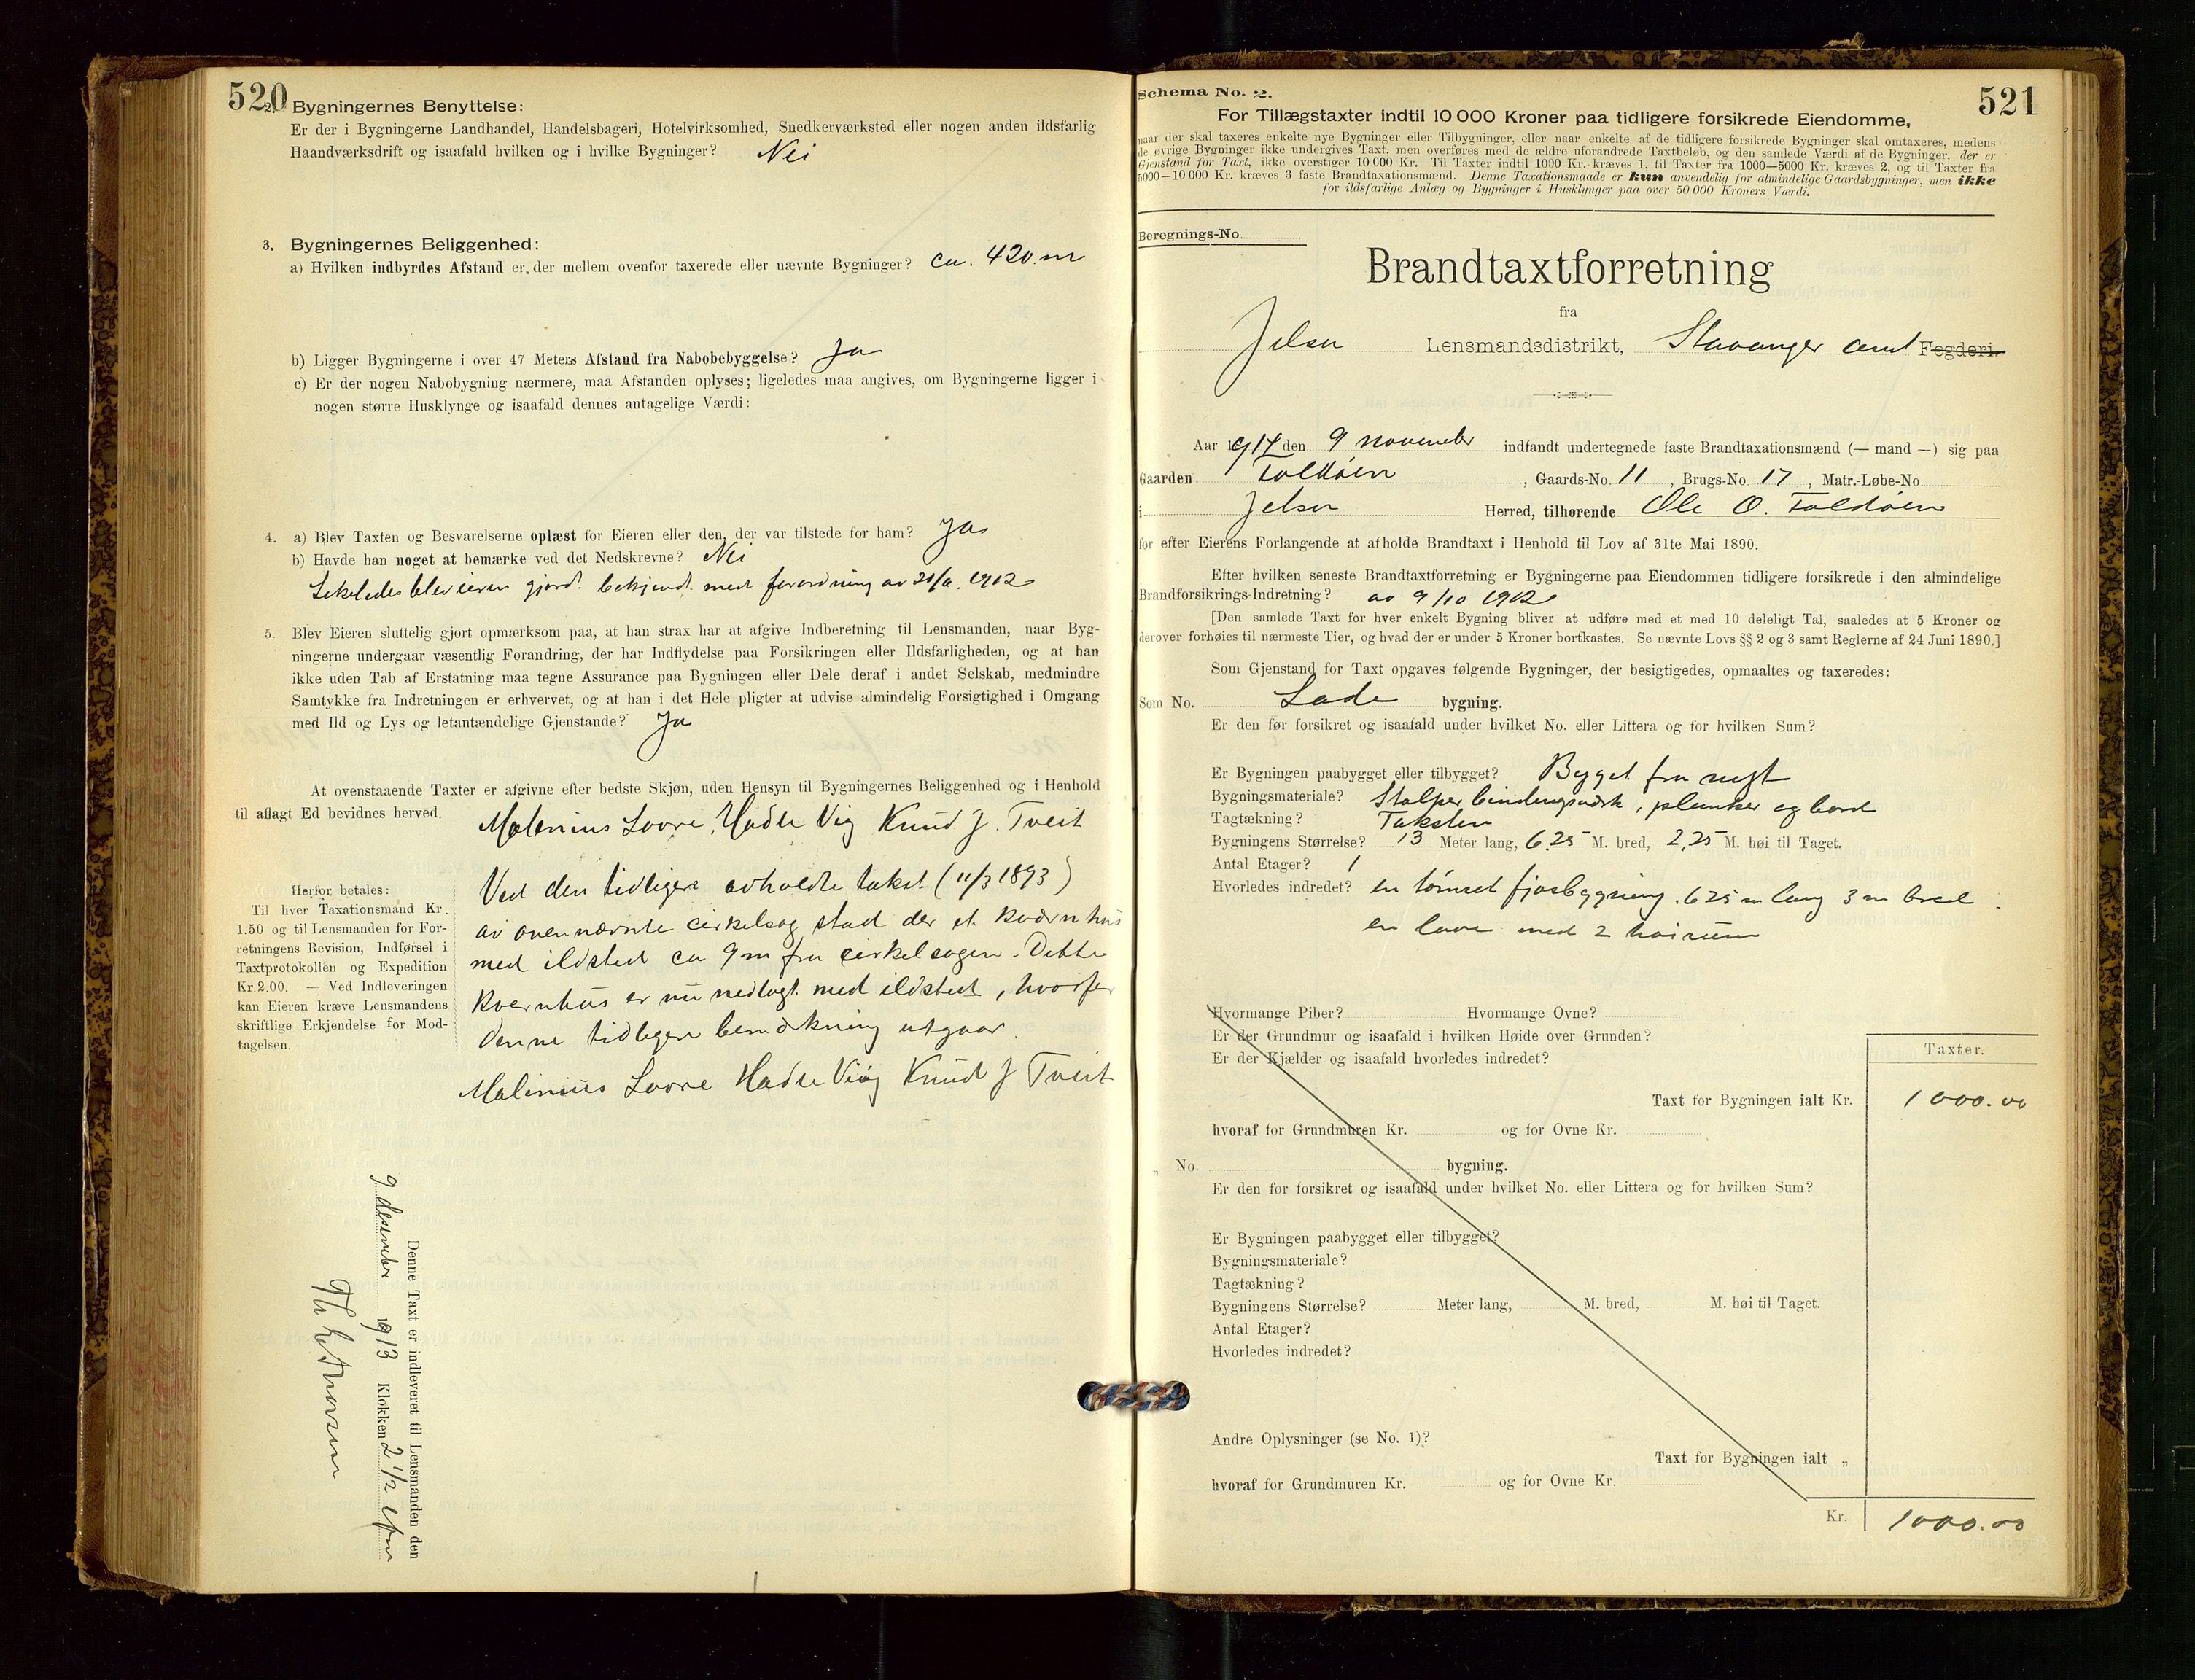 520
2. Bygningernes Benyttelse:
Er der i Bygningerne Landhandel, Handelsbageri, Hotelvirksomhed, Snedkerværksted eller nogen anden ildsfarlig
Haandværksdrift og isaafald hvilken og i hvilke Bygninger? Nei
3. Bygningernes Beliggenhed:
a) Hvilken indbyrdes Afstand er der mellem ovenfor taxerede eller nævnte Bygninger? ca. 420 m
b) Ligger Bygningerne i over 47 Meters Afstand fra Nabobebyggelse? Ja
c) Er der nogen Nabobygning nærmere, maa Afstanden oplyses; ligeledes maa angives, om Bygningerne ligger i
nogen større Husklynge og isaafald dennes antagelige Værdi:
4. a) Blev Taxten og Besvarelserne oplæst for Eieren eller den, der var tilstede for ham? Ja
b) Havde han noget at bemærke ved det Nedskrevne? Nei
blev eieren gjort bekjendt med forordning av 1912
5. Blev Eieren sluttelig gjort opmærksom paa, at han strax har at afgive Indberetning til Lensmanden, naar Byg-
ningerne undergaar væsentlig Forandring, der har Indflydelse paa Forsikringen eller Ildsfarligheden, og at han
ikke uden Tab af Erstatning maa tegne Assurance paa Bygningen eller Dele deraf i andet Selskab, medmindre
Samtykke fra Indretningen er erhvervet, og at han i det Hele pligter at udvise almindelig Forsigtighed i Omgang
med Ild og Lys og letantændelige Gjenstande? Ja
At ovenstaaende Taxter er afgivne efter bedste Skjøn, uden Hensyn til Bygningernes Beliggenhed og i Henhold
til aflagt Ed bevidnes herved.
Malenius Lovre, Hadle Vig Knud J. Tveit
Ved den tidligere avholdte takst (11/3 1893)
av ovennævnte cirkelsag stod der et kværnhus
med ildsted ca 9 m fra cirkelsagen. Dette
kvernhus er nu nedlagt med ildsted, hvorfor
denne tidligere bemerkning utgaar.
Malenius Lovre Hadle Vig Knud J Tveit
Herfor betales:
Til hver Taxationsmand Kr.
1.50 og til Lensmanden for For-
retningens Revision, Indførsel i
Taxtprotokollen og Expedition
Kr. 2.00. — Ved Indleveringen
kan Eieren kræve Lensmandens
skriftlige Erkjendelse for Mod-
tagelsen.
Denne Taxt er indleveret til Lensmanden den
9 desember 1913 Klokken 2 1/2 efm
521
Schema No. 2.
For Tillægstaxter indtil 10 000 Kroner paa tidligere forsikrede Eiendomme,
naar der skal taxeres enkelte nye Bygninger eller Tilbygninger, eller naar enkelte af de tidligere forsikrede Bygninger skal omtaxeres, medens
de øvrige Bygninger ikke undergives Taxt, men overføres med de ældre uforandrede Taxtbeløb, og den samlede Værdi af de Bygninger, der er
Gjenstand for Taxt, ikke overstiger 10 000 Kr. Til Taxter indtil 1000 Kr. kræves 1, til Taxter fra 1000—5000 Kr. kræves 2, og til Taxter fra
5000—10 000 Kr. kræves 3 faste Brandtaxationsmænd. Denne Taxationsmaade er kun anvendelig for almindelige Gaardsbygninger, men ikke
for ildsfarlige Anlæg og Bygninger i Husklynger paa over 50 000 Kroners Værdi.
Beregnings-No.
Brandtaxtforretning
fra
Jelsa Lensmandsdistrikt, Stavanger amt Fogderi.
Aar 1917 den 9 november indfandt undertegnede faste Brandtaxationsmænd (— mand —) sig paa
Gaarden Foldøen, Gaards-No. 11, Brugs-No. 17, Matr.-Løbe-No.
i Jelsa Herred, tilhørende Ole O. Foldøen
for efter Eierens Forlangende at afholde Brandtaxt i Henhold til Lov af 31te Mai 1890.
Efter hvilken seneste Brandtaxtforretning er Bygningerne paa Eiendommen tidligere forsikrede i den almindelige
Brandforsikrings-Indretning? av 9/10 1912
[Den samlede Taxt for hver enkelt Bygning bliver at udføre med et med 10 deleligt Tal, saaledes at 5 Kroner og
derover forhøies til nærmeste Tier, og hvad der er under 5 Kroner bortkastes. Se nævnte Lovs §§ 2 og 3 samt Reglerne af 24 Juni 1890.]
Som Gjenstand for Taxt opgaves følgende Bygninger, der besigtigedes, opmaaltes og taxeredes:
Som No. Lade bygning.
Er den før forsikret og isaafald under hvilket No. eller Littera og for hvilken Sum?
Er Bygningen paabygget eller tilbygget? Bygget fra nyt
Bygningsmateriale? Stolper bindingsverk, planker og bord
Tagtækning? Taksten
Bygningens Størrelse? 13 Meter lang, 6,25 M. bred, 2,25 M. høi til Taget.
Antal Etager? 1
Hvorledes indredet? en tømret fjosbygning. 6 25 m lang 3 m bred.
en love med 2 høirum
Hvormange Piber? Hvormange Ovne?
Er der Grundmur og isaafald i hvilken Høide over Grunden?
Er der Kjælder og isaafald hvorledes indredet?
Taxter.
Taxt for Bygningen ialt Kr. 1000.00
hvoraf for Grundmuren Kr. og for Ovne Kr.
„ No. bygning.
Er den før forsikret og isaafald under hvilket No. eller Littera og for hvilken Sum?
Er Bygningen paabygget eller tilbygget?
Bygningsmateriale?
Tagtækning?
Bygningens Størrelse? Meter lang, M. bred, M. høi til Taget.
Antal Etager?
Hvorledes indredet?
Andre Oplysninger (se No. 1)?
Taxt for Bygningen ialt „
hvoraf for Grundmuren Kr. og for Ovne Kr.
Kr. 1000.00